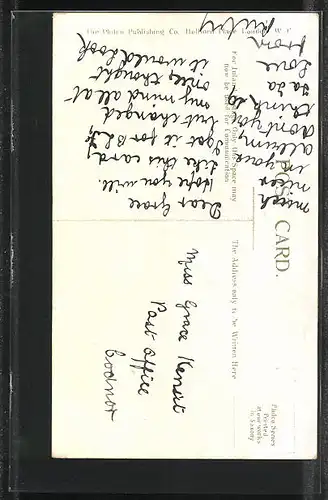 The Philco Publishing Co., Holborn Place, London, W.C.
POST CARD.
For Inland Use only this Space may
now be used for Communication
The Address only to be Written Here
Dear Grace
Hope you will
like this card
I got it for
but changed
my mind all at
once thought
it would look
much
nicer
in your
album
don't you
think so
Ta Ta
Love
from
Miss Grace
Post Office
Codnor
Philco Series
Printed
at our works
in Saxony